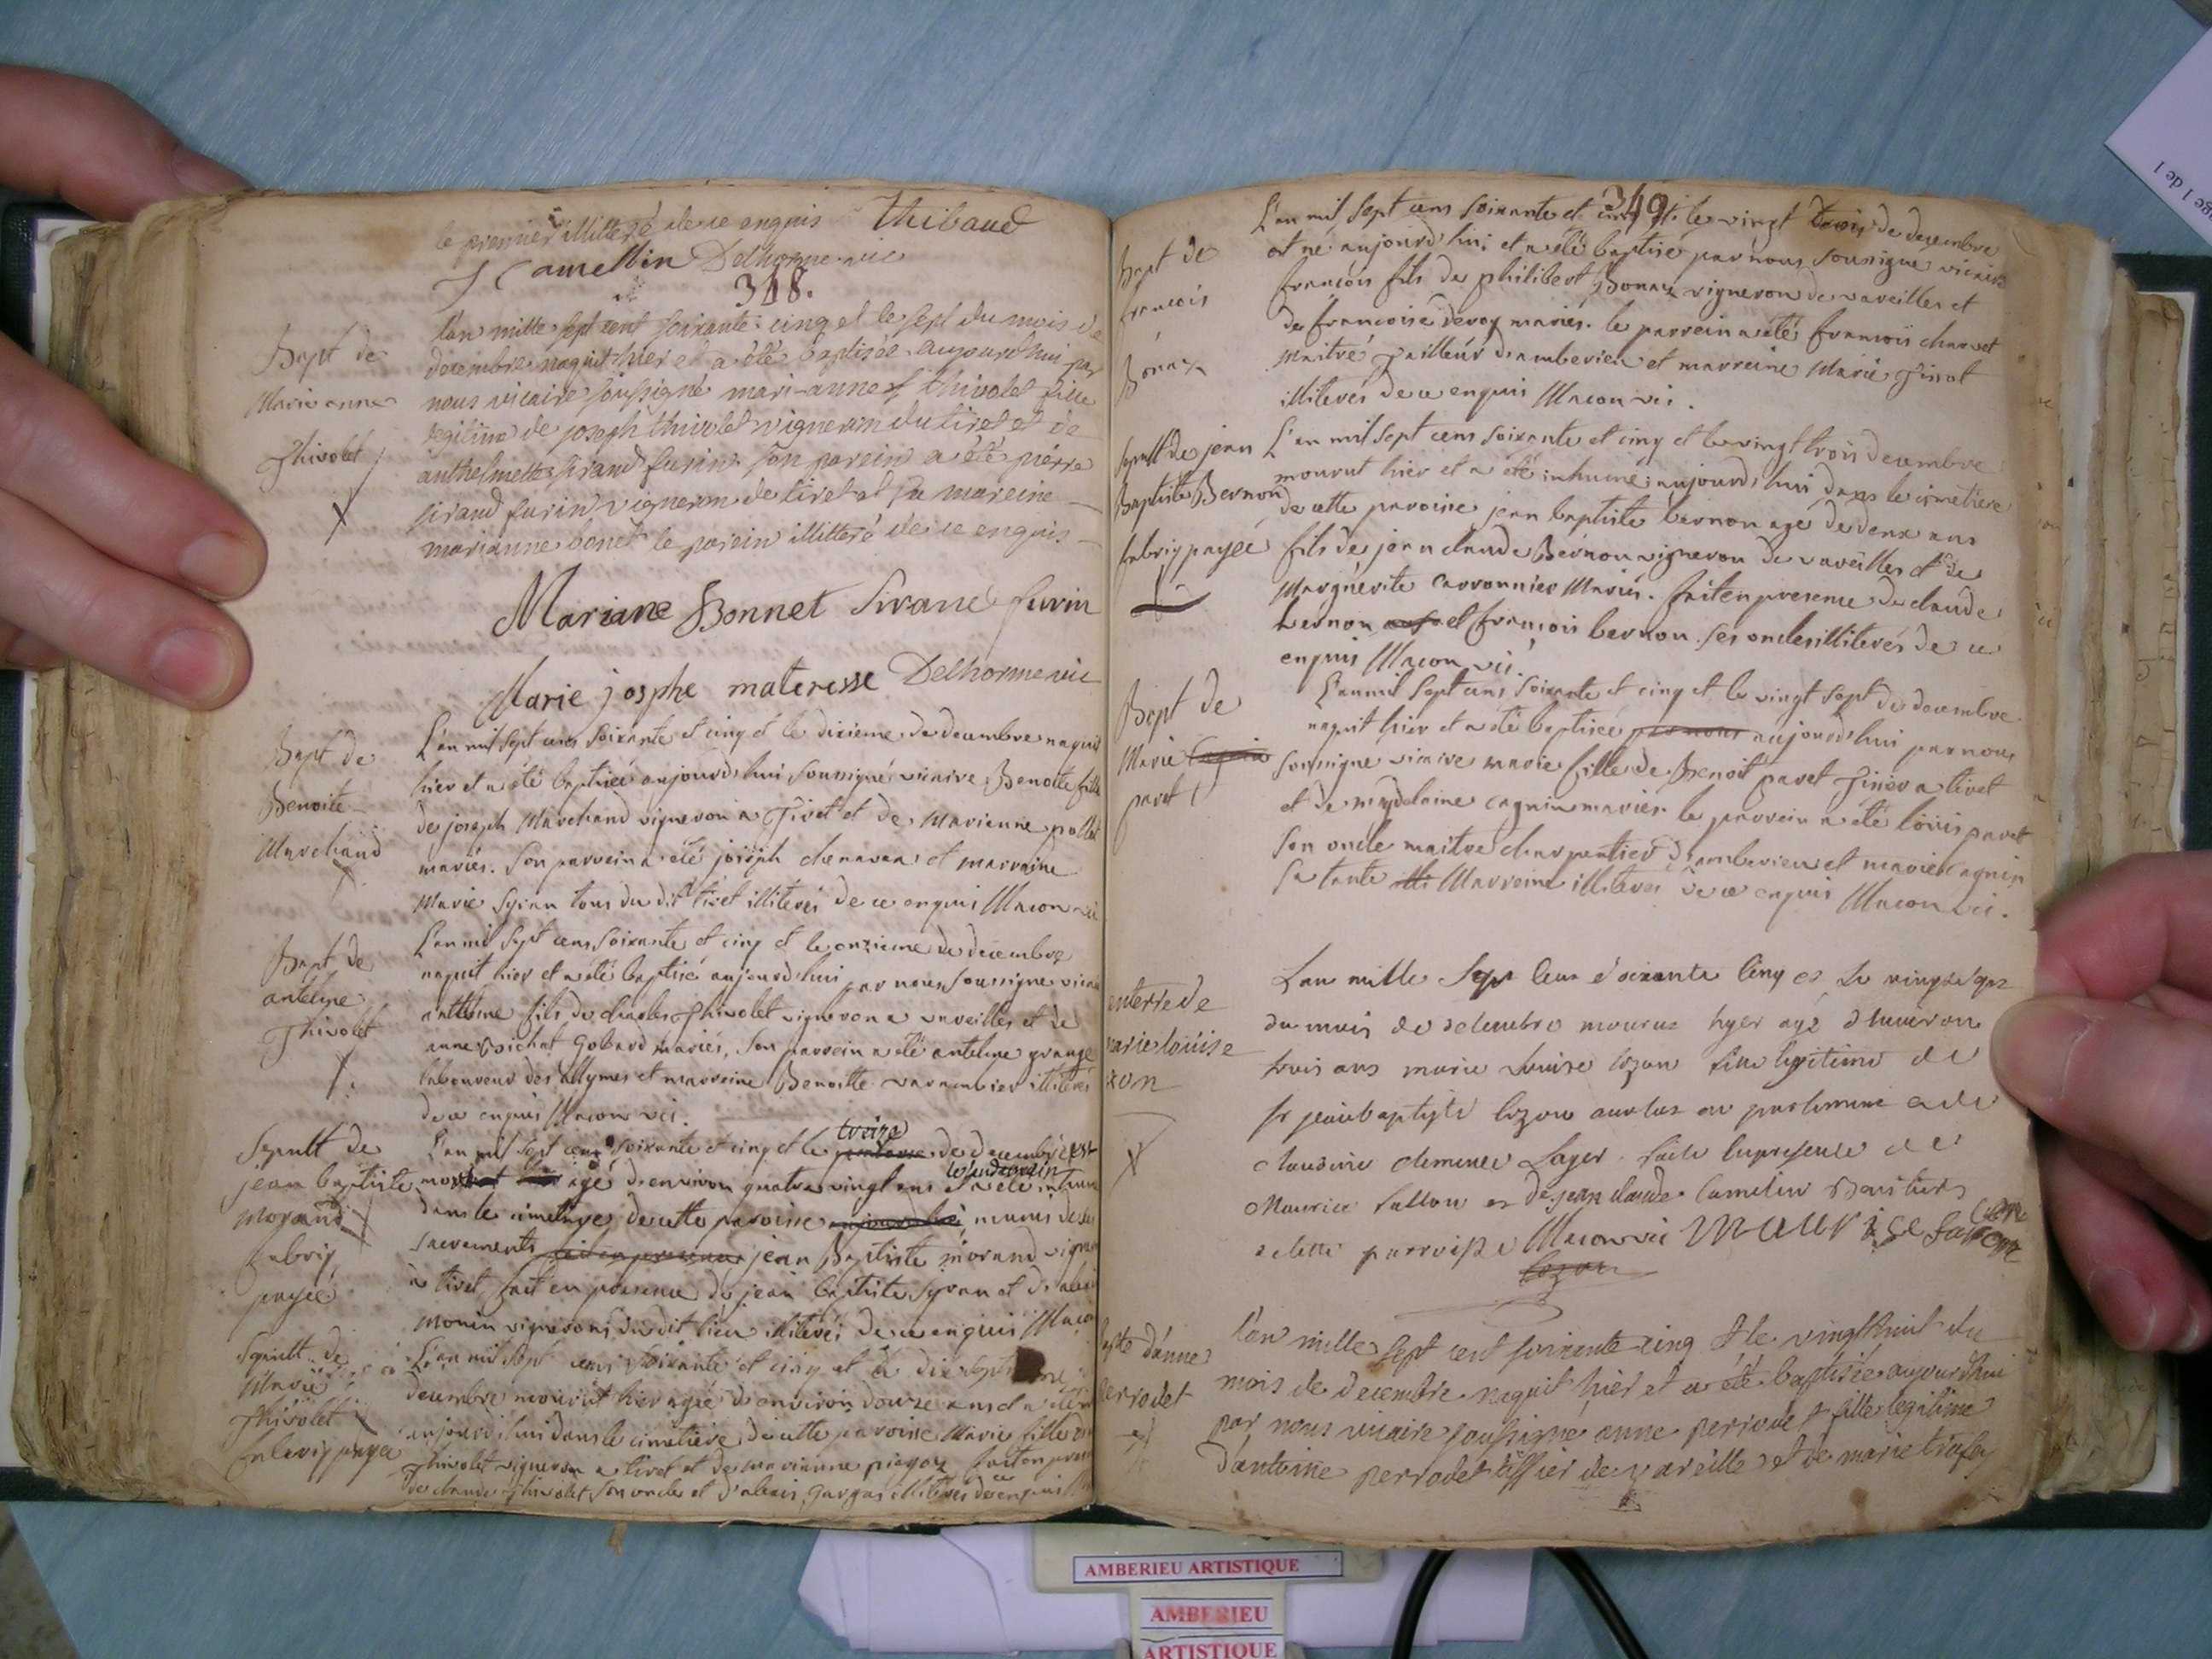 le premier illitteré de ce enquis Thibaud
J Camellin Delhorme vic
348.
Bapt de
Marie anne
Thivolet
l'an mille sept cent soixante cinq et le sept du mois de
decembre naquit hier et a été baptisée aujourd'hui par
nous vicaire soussigné mari-anne thivolet fille
legitime de joseph thivolet vigneron du tiret et de
anthelmette sirand furin son parein a été pierre
sirand furin vigneron de tiret et sa mareine
marianne bonet le parein illitteré de ce enquis
Mariane Bonnet Sirand furin
Marie josphe materesse Delhorme vic
Bapt de
Benoite
Marchand
L'an mil sept cens soixante et cinq et le dixieme de decembre naquit
hier et a été baptisée aujourdhui soussigné vicaire Benoite fille
de joseph Marchand vigneron a Tiret et de Marienne pollet
mariés. Son parrein a été joseph chenavaz et marraine
Marie Syran tous du dit tiret illiterés de ce enquis Macon vic
Bapt de
antelme
Thivolet
L'an mil sept cens soixante et cinq et le onzieme de decembre
naquit hier et a été baptisé aujourdhui par nous soussigne vicaire
antelme fils de charles Thivolet vigneron a vareilles et de
anne Boichat Gobard mariés, son parrein a été antelme grange
laboureur des allymes et marreine Benoitte varambier illiterés
de ce enquis Macon vic.
Sepult de
jean baptiste
Morand
fabriq
payée
L'an mil sept cens soixante et cinq et le treize de decembre est
mort agé d'environ quatre vingt ans et a été le lendemain inhumé
dans le cimetiere de cette paroisse munis de ses
sacrements jean Baptiste morand vigneron
à tiret, fait en presence de jean baptiste Syran et d'alexis
Monin vignerons du dit lieu illiterés de ce enquis Macon
Sepult de
Marie
Thivolet
fabriq payée
L'an mil sept cens soixante et cinq et le dix sept
decembre mourut hier agée d'environ douze ans et a été
aujourdhui dans le cimetiere de cette paroisse Marie fille de
Thivolet vigneron a tiret et de marianne fait en presence
de claude Thivolet son oncle et d'alexis gargas illiterés de ce enquis
349
Bapt de
francois
Bonaz
L'an mil sept cens soixante et cinq et le vingt trois de decembre
est né aujourdhui et a été baptisé par nous soussigné vicaire
francois fils de philibert Bonaz vigneron de vareilles et
de francoise devoz mariés. le parrein a été francois charvet
maitre Tailleur d'amberieu et marreine Marie Tissot
illiterés de ce enquis Macon vic.
Sepult de jean
Baptiste Bernon
fabriq payée
L'an mil sept cens soixante et cinq et le vingt trois decembre
mourut hier et a été inhumé aujourdhui dans le cimetiere
de cette paroisse jean baptiste bernon agé de deux ans
fils de jean claude Bernon vigneron de vareilles et de
Marguerite carronnier Mariés. fait en presence de claude
bernon et francois bernon ses oncles illiterés de ce
enquis Macon vic.
Bapt de
Marie
pavet
L'an mil sept cens soixante et cinq et le vingt sept de decembre
naquit hier et a été baptisée aujourdhui par nous
soussigne vicaire marie fille de Benoit pavet a tiret
et de magdelaine cagnin mariés. le parrein a été loüis pavet
son oncle maitre charpentier d'amberieu et marie cagnin
sa tante Marreine illiterés de ce enquis Macon vic.
enterre de
marie loüise
L'an mille sept cens soixante cinq et le vingt sept
du mois de decembre mourut hyer agé d'environ
trois ans marie louise cozon fille legitime de
sr jean baptiste cozon avocat au parlement et de
claudine clemence Layer. faite en presence de
Maurice fallon et de jean claude Camelin
de cette parroisse Macon vic Maurice falon
cozon
d'anne
perrodet
l'an mille sept cent soixante cinq et le vingt huit du
mois de decembre naquit hier et a été baptisée aujourd'hui
par nous vicaire soussigné anne perrodet fille legitime
d'antoine perrodet tissier de vareille et de marie
AMBERIEU ARTISTIQUE
AMBERIEU
ARTISTIQUE